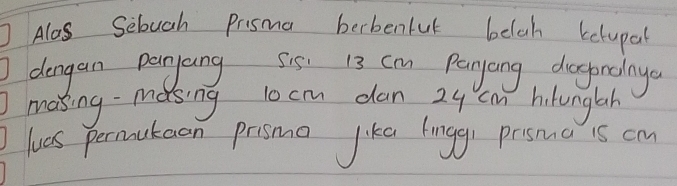 Alas Sebuah Prisma berbentuk belah ketupat
dengan panjang sisi 13 cm Panjang diagonalnya
masing-masing 10 cm dan 24 cm hitunglah
luas permukaan prisma jika tinggi prisma 15 cm